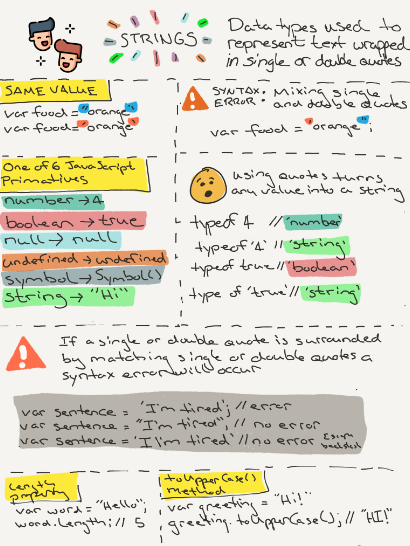 STRINGS
Data types used to
represent text wrapped
in single or double quotes
SAME VALUE
var food = "orange";
var food = 'orange';
SYNTAX ERROR: Mixing single and double quotes
var food = 'orange";
One of 6 JavaScript
Primatives
number → 4
boolean → true
null → null
undefined → undefined
symbol → Symbol()
string → "Hi"
using quotes turns
any value into a string
typeof 4 // 'number'
typeof '4' // 'string'
typeof true // 'boolean'
type of 'true' // 'string'
If a single or double quote is surrounded
by matching single or double quotes a
syntax error will occur
var sentence = 'I'm tired'; // error
var sentence = "I'm tired"; // no error
var sentence = 'I\'m tired' // no error Escape backslash
Length
property
var word = "Hello";
word.length; // 5
toUpperCase()
method
var greeting = "Hi!"
greeting.toUpperCase(); // "HI!"